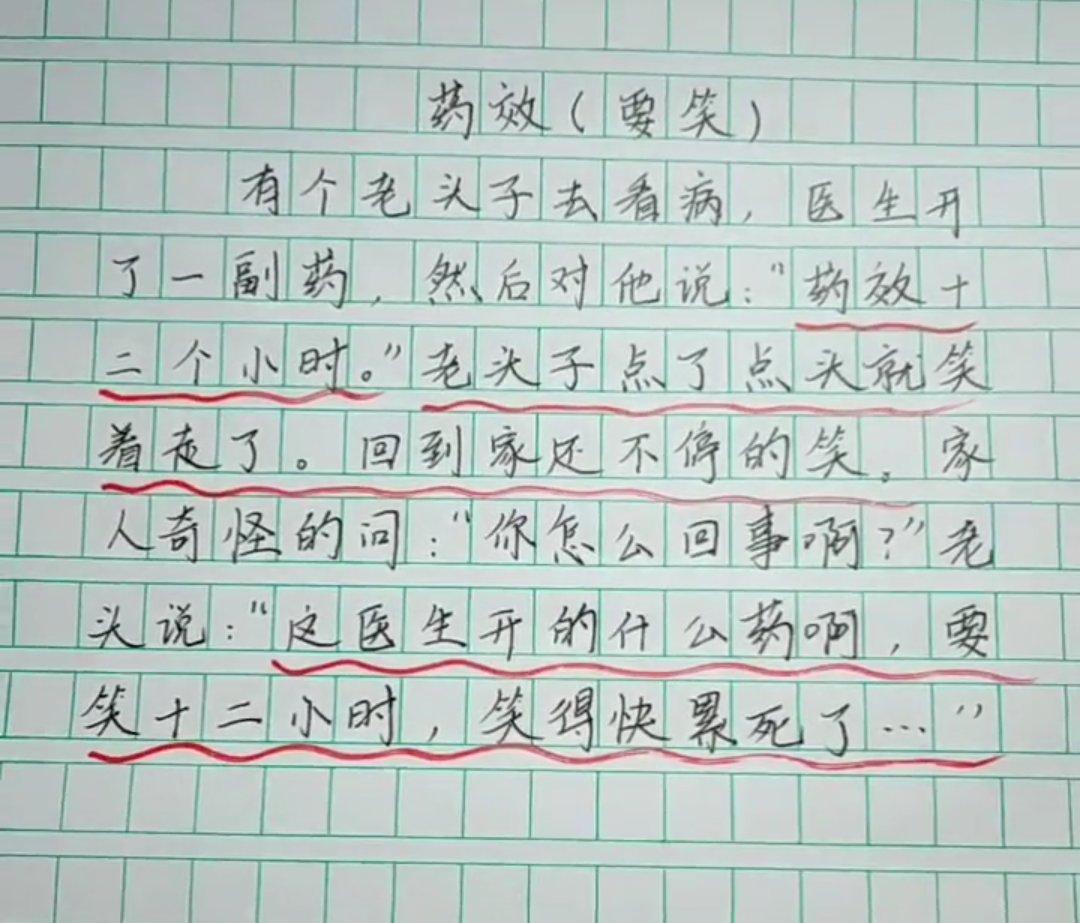 药效(要笑)
有个老头子去看病，医生开
了一副药，然后对他说："药效十
二个小时。"老头子点了点头就笑
着走了。回到家还不停的笑。家
人奇怪的问："你怎么回事啊?"老
头说："这医生开的什么药啊，要
笑十二小时，笑得快累死了…"